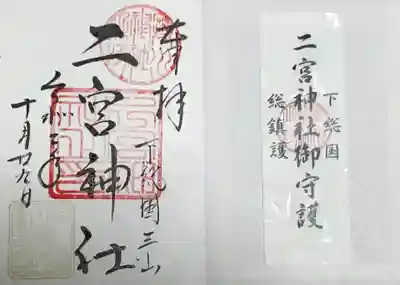 奉拝
下総国三山
二宮神社
令和三年
十月廿六日
下総国
二宮神社御守護
総鎮護